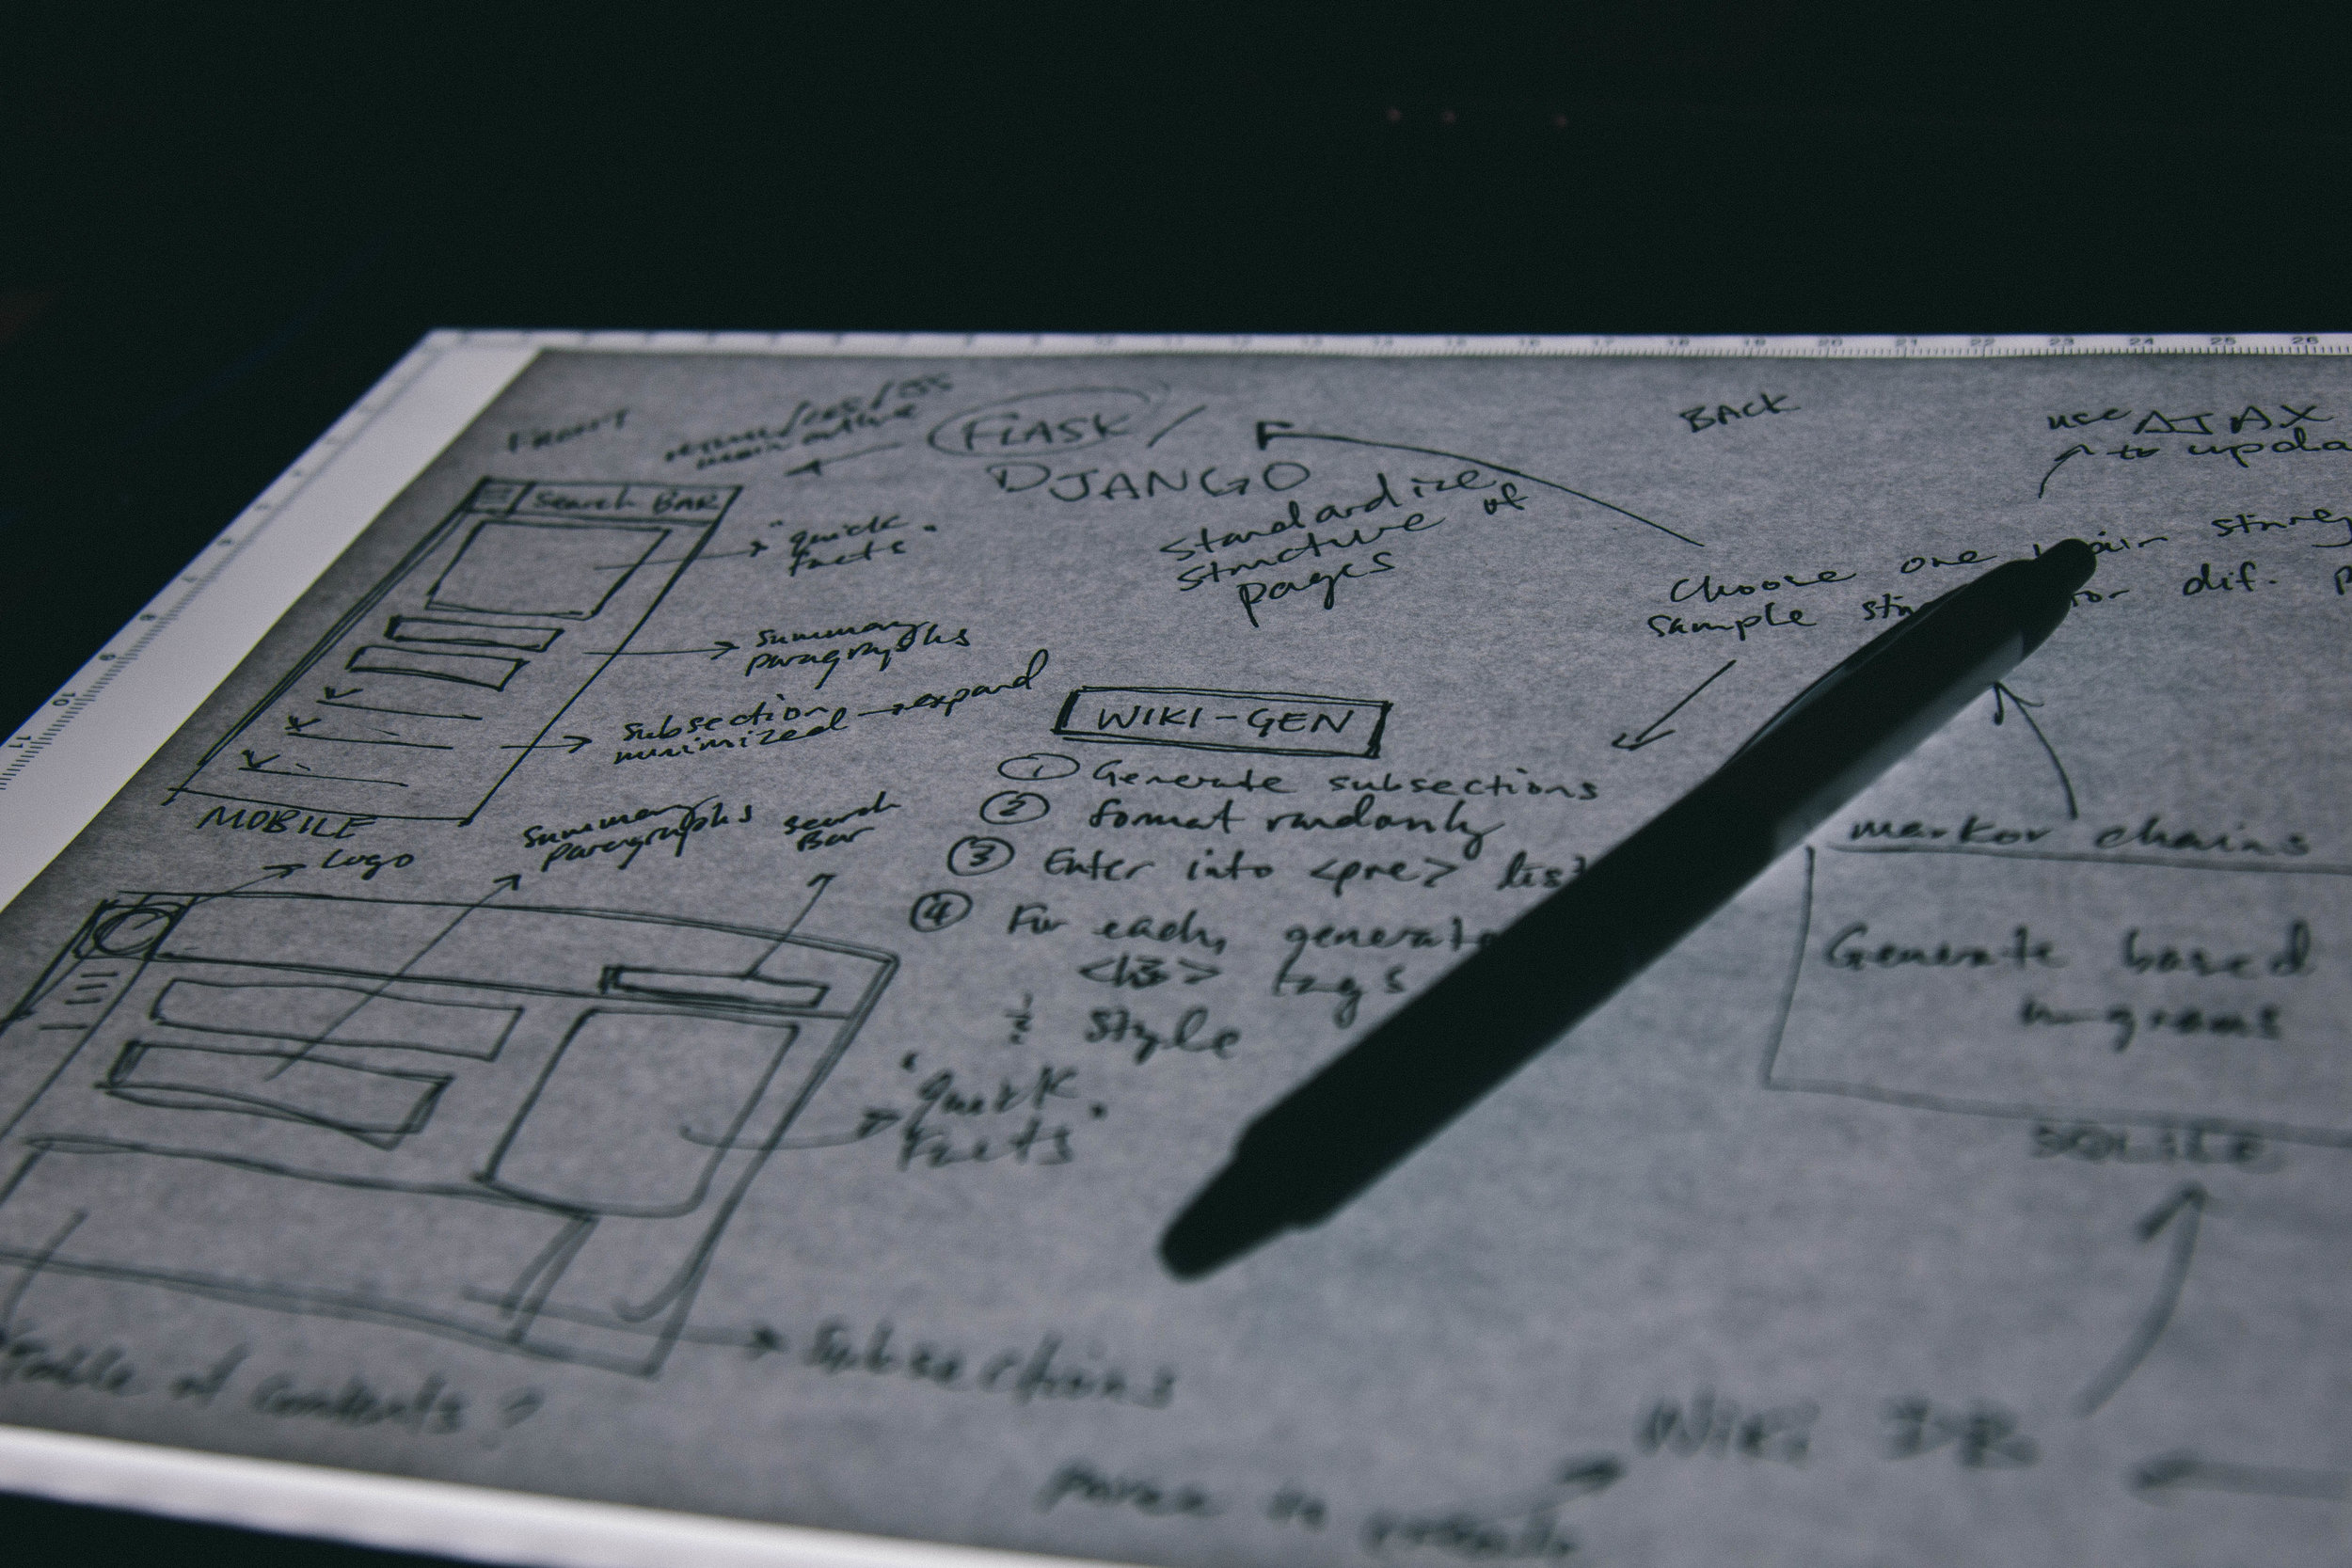 FRONT
HTML/CSS/JS
main outline
FlASK /
DJANGO
BACK
use AJAX
to upda
Search BAR
"quick
facts"
Standardize
structure of
pages
Choose one
string
sample
for dif.
summary
paragraphs
Subsection
minimized → expand
MOBILE
WIKI-GEN
① Generate subsections
② format randomly
③ Enter into <pre> list
④ For each, generate
<h3> tags
style
markov chains
Generate based
n-grams
SQLite
Logo
summary
paragraphs
search
Bar
"quick
Facts"
Subsections
Table of Contents?
Wiki DB
parse in